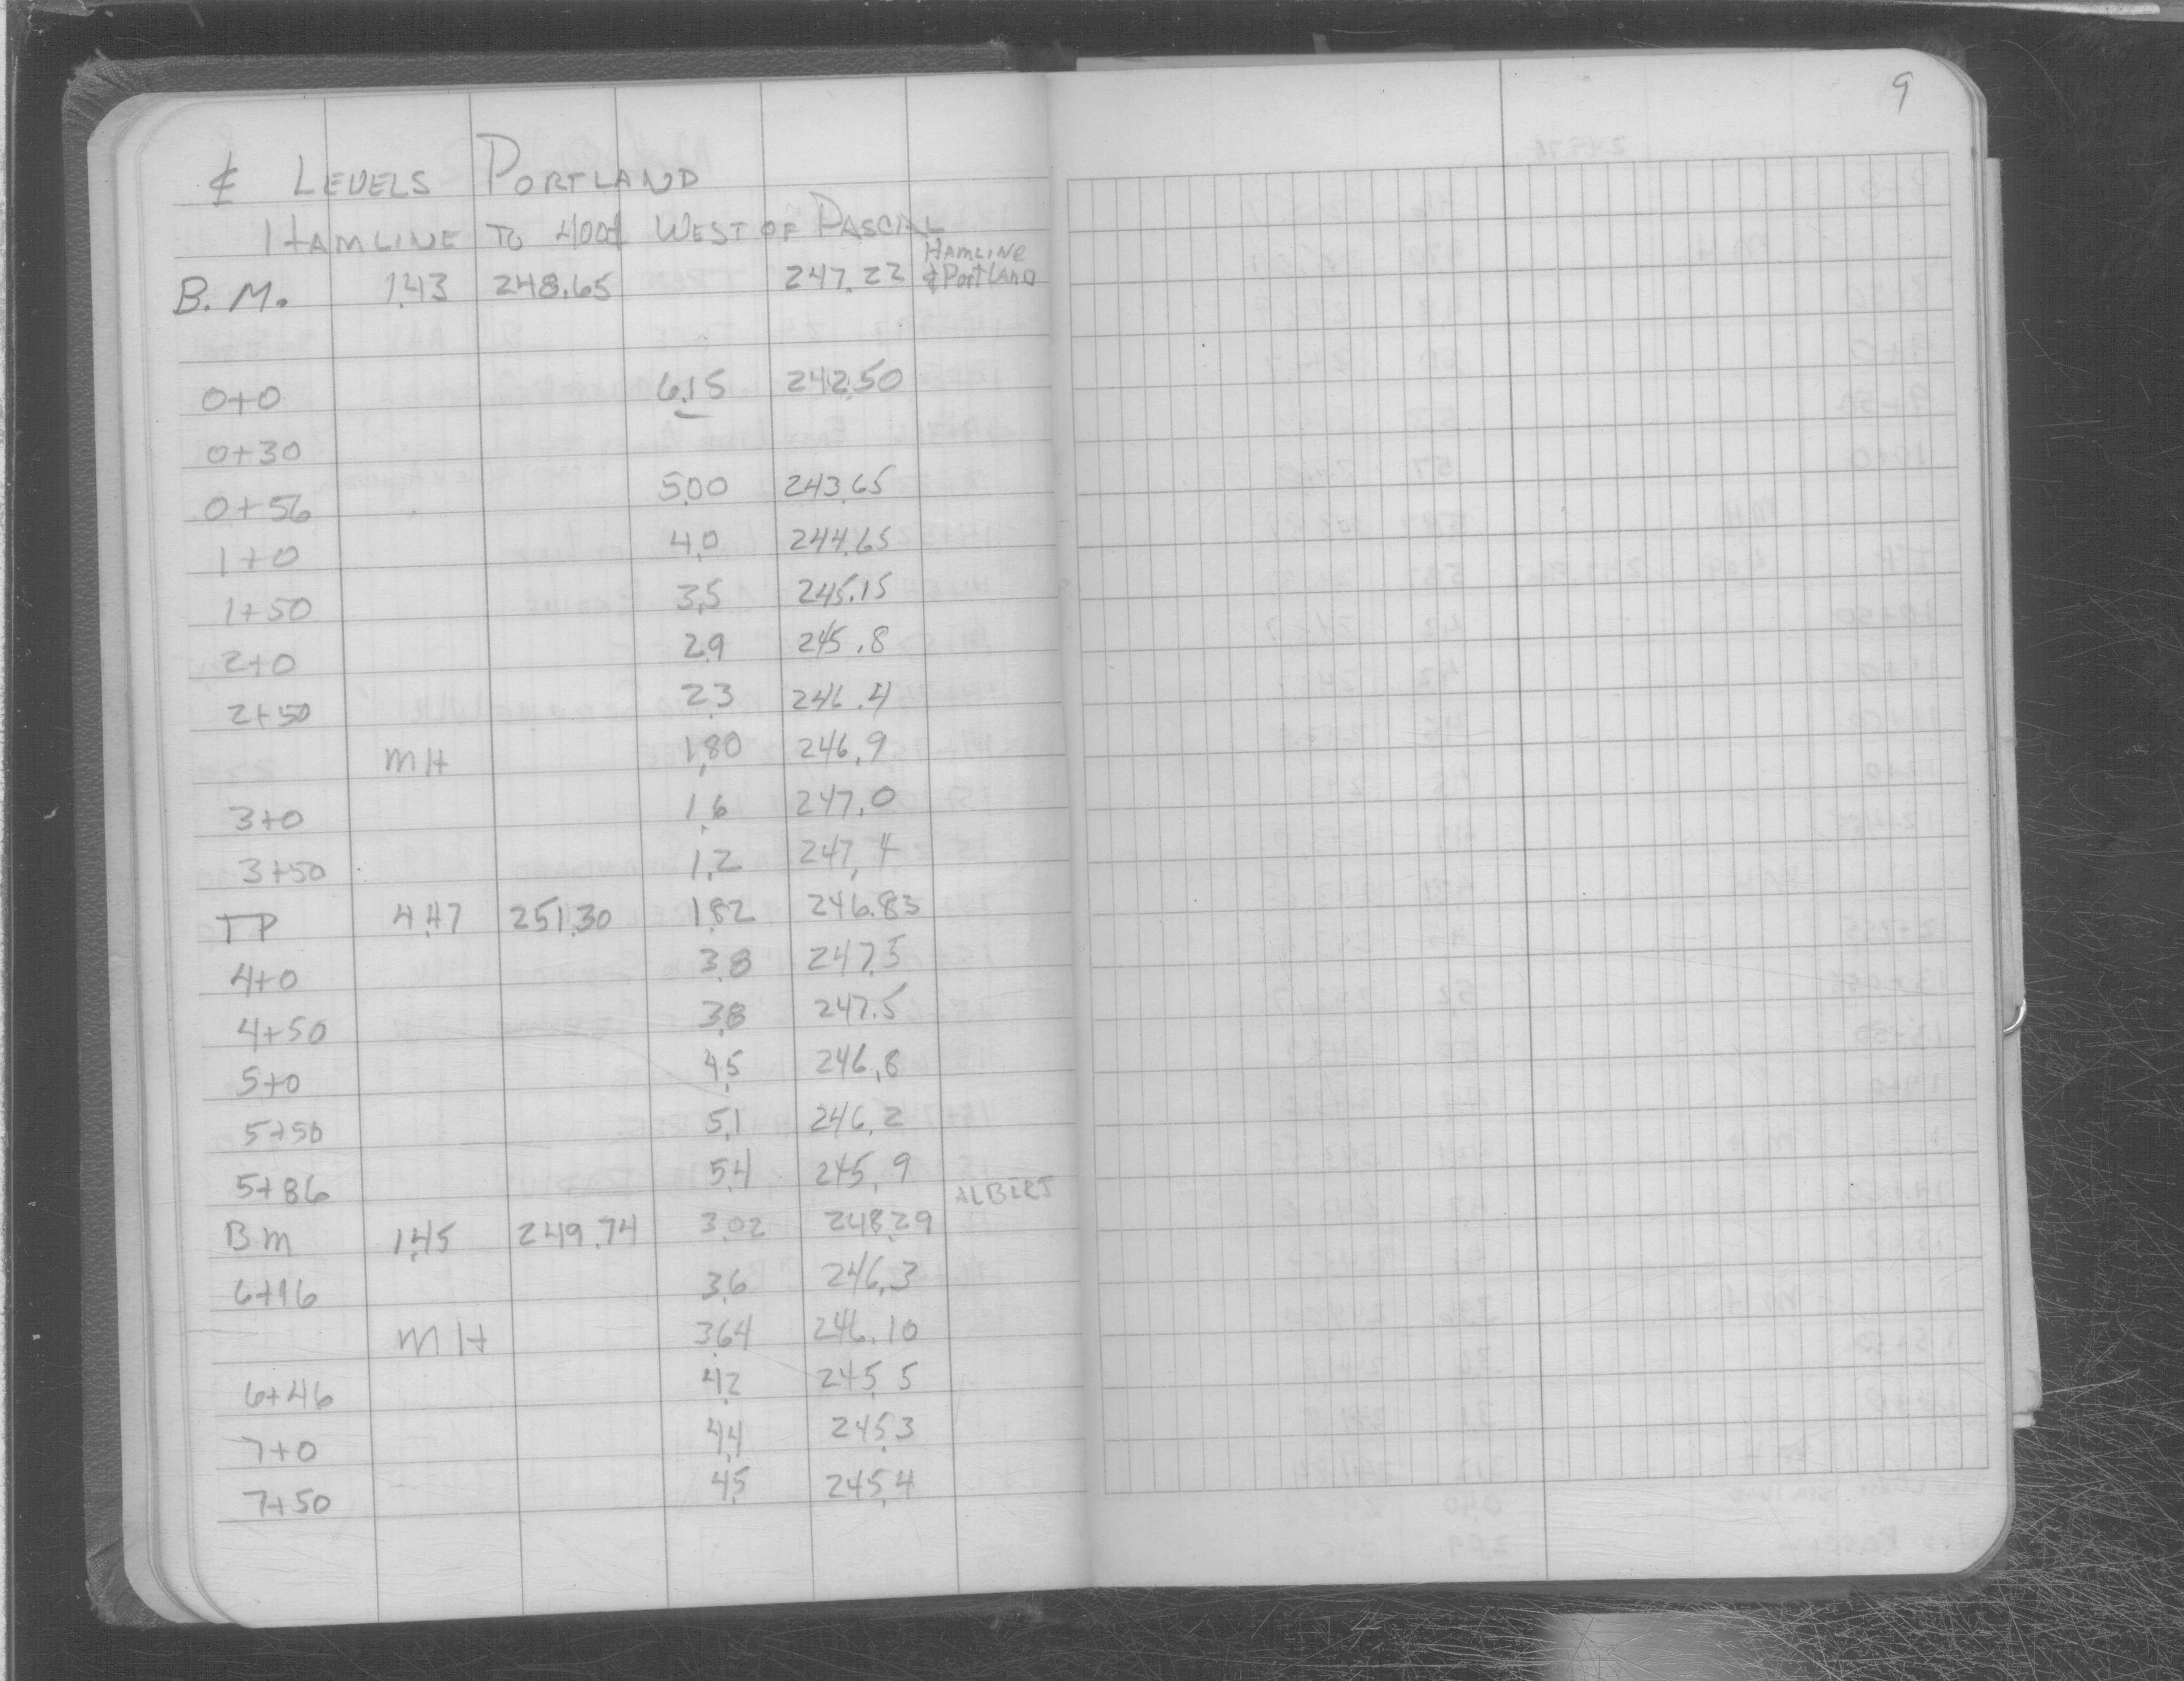 9
₵ LEVELS PORTLAND
HAMLINE TO 400± WEST OF PASCAL
B.M. 1.43 248.65 247.22 HAMLINE & PORTLAND
0+0 6.15 242.50
0+30
0+56 5.00 243.65
1+0 4.0 244.65
1+50 3.5 245.15
2+0 2.9 245.8
2+50 2.3 246.4
MH 1.80 246.9
3+0 1.6 247.0
3+50 1.2 247.4
TP 4.47 251.30 1.82 246.83
4+0 3.8 247.5
4+50 3.8 247.5
5+0 4.5 246.8
5+50 5.1 246.2
5+86 5.4 245.9
BM 1.45 249.74 3.02 248.29 ALBERT
6+16 3.6 246.3
MH 3.64 246.10
6+46 4.2 245.5
7+0 4.4 245.3
7+50 4.5 245.4